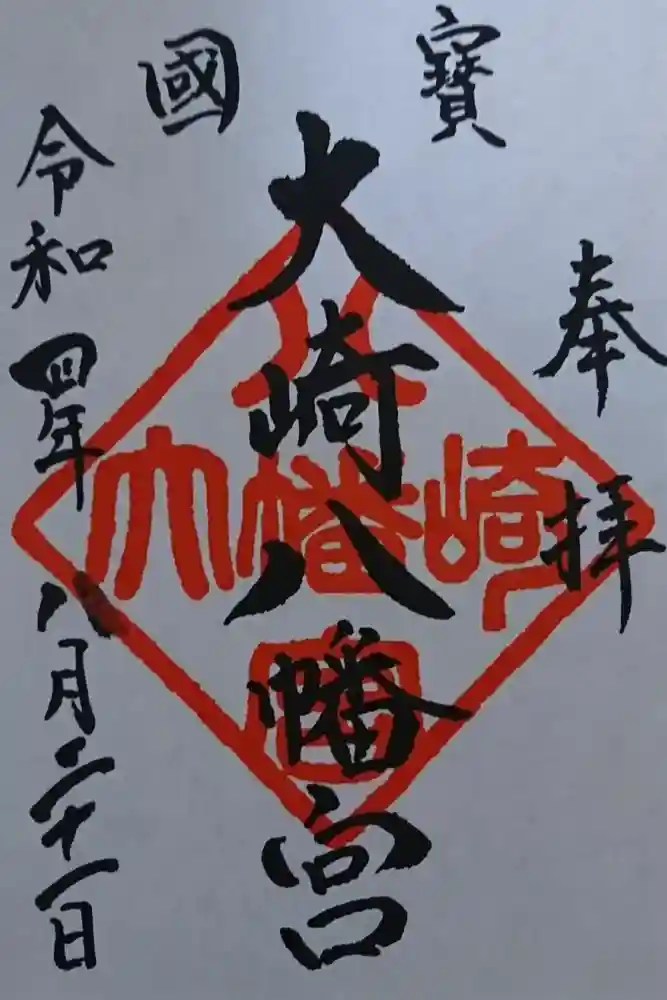 寶國
奉拝
大崎八幡宮
令和四年八月二十一日
八
大幡崎